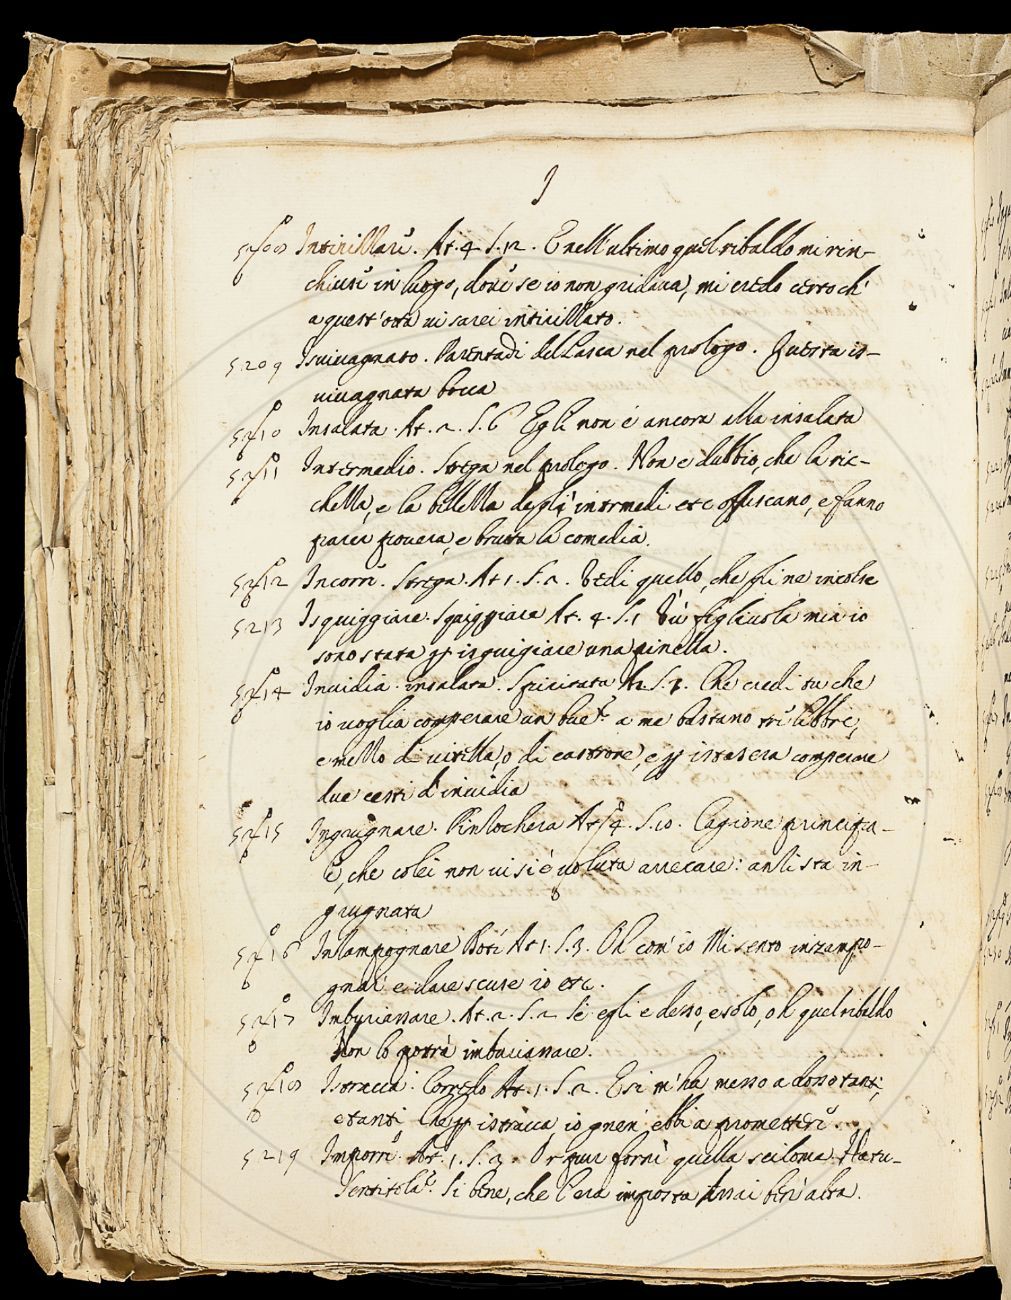 I
5208 Intirillare. At. 4 S. 12. E nell'ultimo quel ribaldo mi rin-
chiuse in luogo, dove se io non gridava, mi credo certo ch'
a quest'otta vi sarei intirillato.
5209 Isvivagnato. Parentadi del Lasca nel prologo. Questa is-
vivagnata bocca
5210 Insalata. At. 2. S. 6 Egli non è ancora alla insalata
5211 Intermedio. Strega nel prologo. Non e dubbio, che la ric-
chezza, e la bellezza degli intermedi etc offuscano, e fanno
parer povera, e brutta la comedia.
5212 Incorre. Strega. At 1. S. 2. Vedi quello, che pli ne incolse
5213 Isquiggiare. Sguiggiare At. 4. S. 1 Tu figliuola mia io
sono stata p isguigiare una pinella.
5214 Invidia. insalata. Spiritata At 2 S. 3. Che credi tu che
io voglia comperare un bue? a me bastano tre libbre,
e mezzo di vitella, o di castrone, e p istasera comperare
due cesti d'invidia
5215 Ingrugnare. Pinzochera At 4. S. 10. Cagione principa-
le, che colei non vi si è voluta arrecare: anzi sta in-
grugnata
5216 Inzampognare Poti At 1. S. 3. Oh com'io mi sento inzampo-
gnare e dare scuse io etc.
5217 Imburiassare. At. 2. S. 2 Se egli e desso, e solo, oh quel ribaldo
Non lo potrà imburiassare.
5218 Istracca. Corredo At. 1. S. 2. E si m'ha messo a dosso tanti,
e tanti, che p istracca io gnen' ebbi a promettere.
5219 Imporre At. 1. S. 3. Or pur fornì quella sciloma
Sentitola? Si bene, che l'era imposta assai ben' alta.